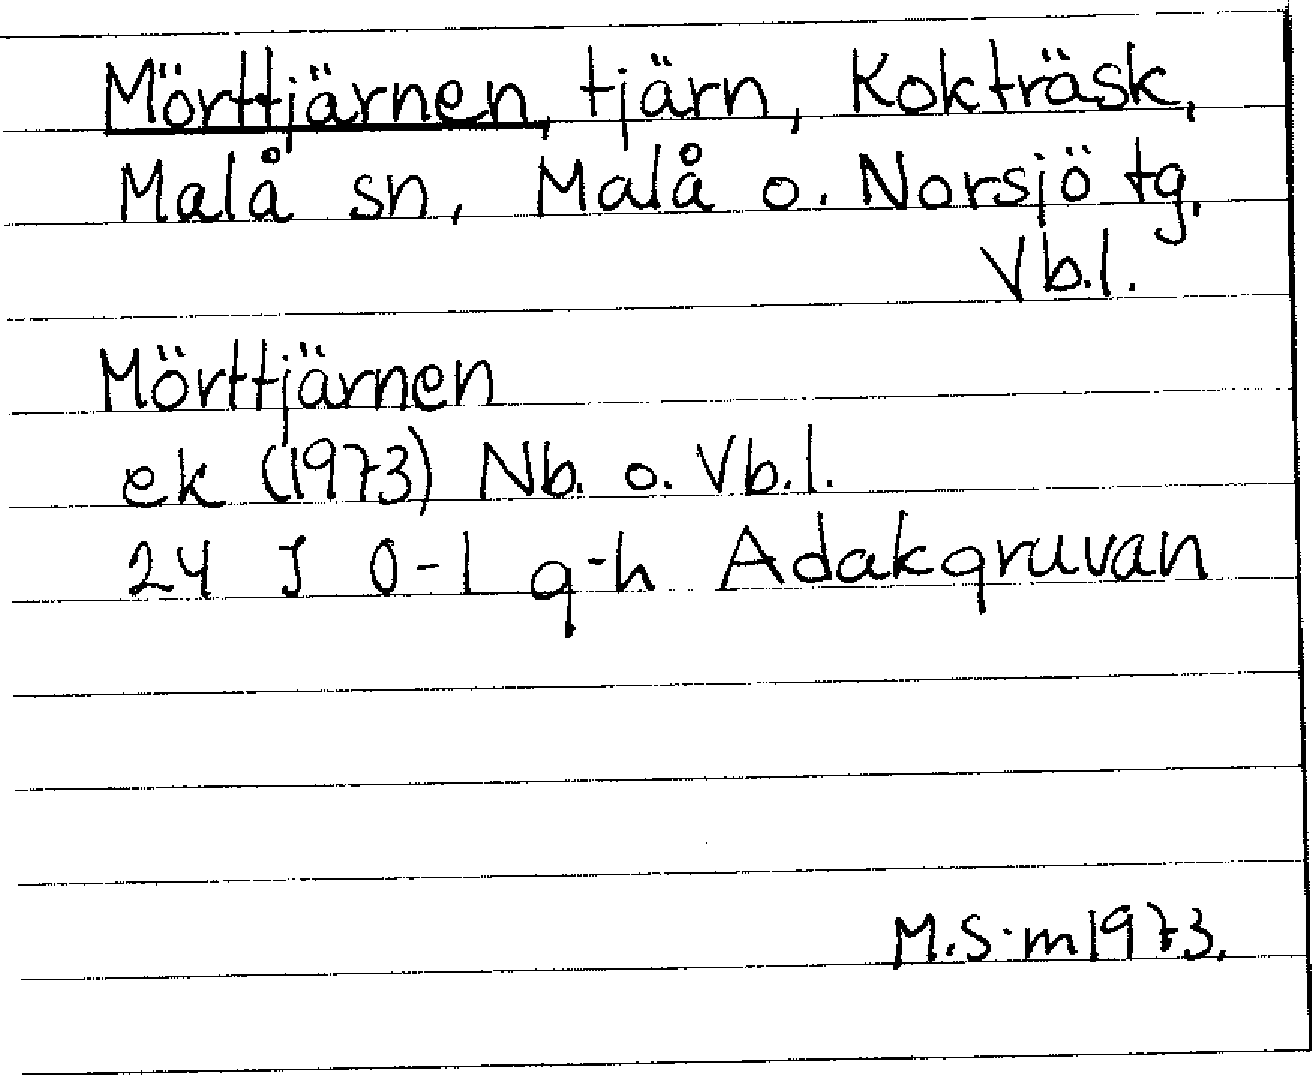 Mörttjärnen, tjärn, Kokträsk,
Malå sn, Malå o. Norsjö tg,
Vb.l.
Mörttjärnen
ek (1973) Nb. o. Vb.l.
24 J 0-1 g-h Adakgruvan
M.S-m 1973.